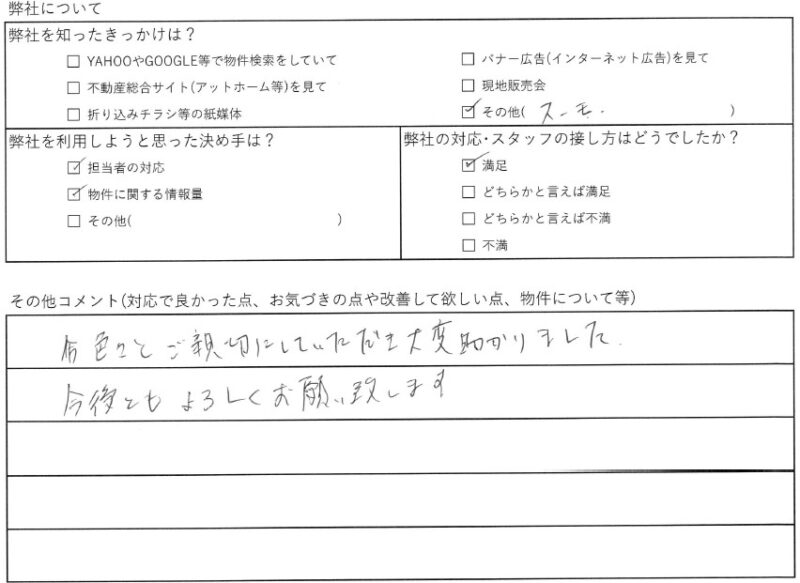 弊社について
弊社を知ったきっかけは？
□ YAHOOやGOOGLE等で物件検索をしていて
□ バナー広告(インターネット広告)を見て
□ 不動産総合サイト(アットホーム等)を見て
□ 現地販売会
□ 折り込みチラシ等の紙媒体
☑ その他( スーモ. )
弊社を利用しようと思った決め手は？
☑ 担当者の対応
☑ 物件に関する情報量
□ その他( )
弊社の対応・スタッフの接し方はどうでしたか？
☑ 満足
□ どちらかと言えば満足
□ どちらかと言えば不満
□ 不満
その他コメント(対応で良かった点、お気づきの点や改善して欲しい点、物件について等)
色々とご親切にしていただき大変助かりました.
今後ともよろしくお願い致します